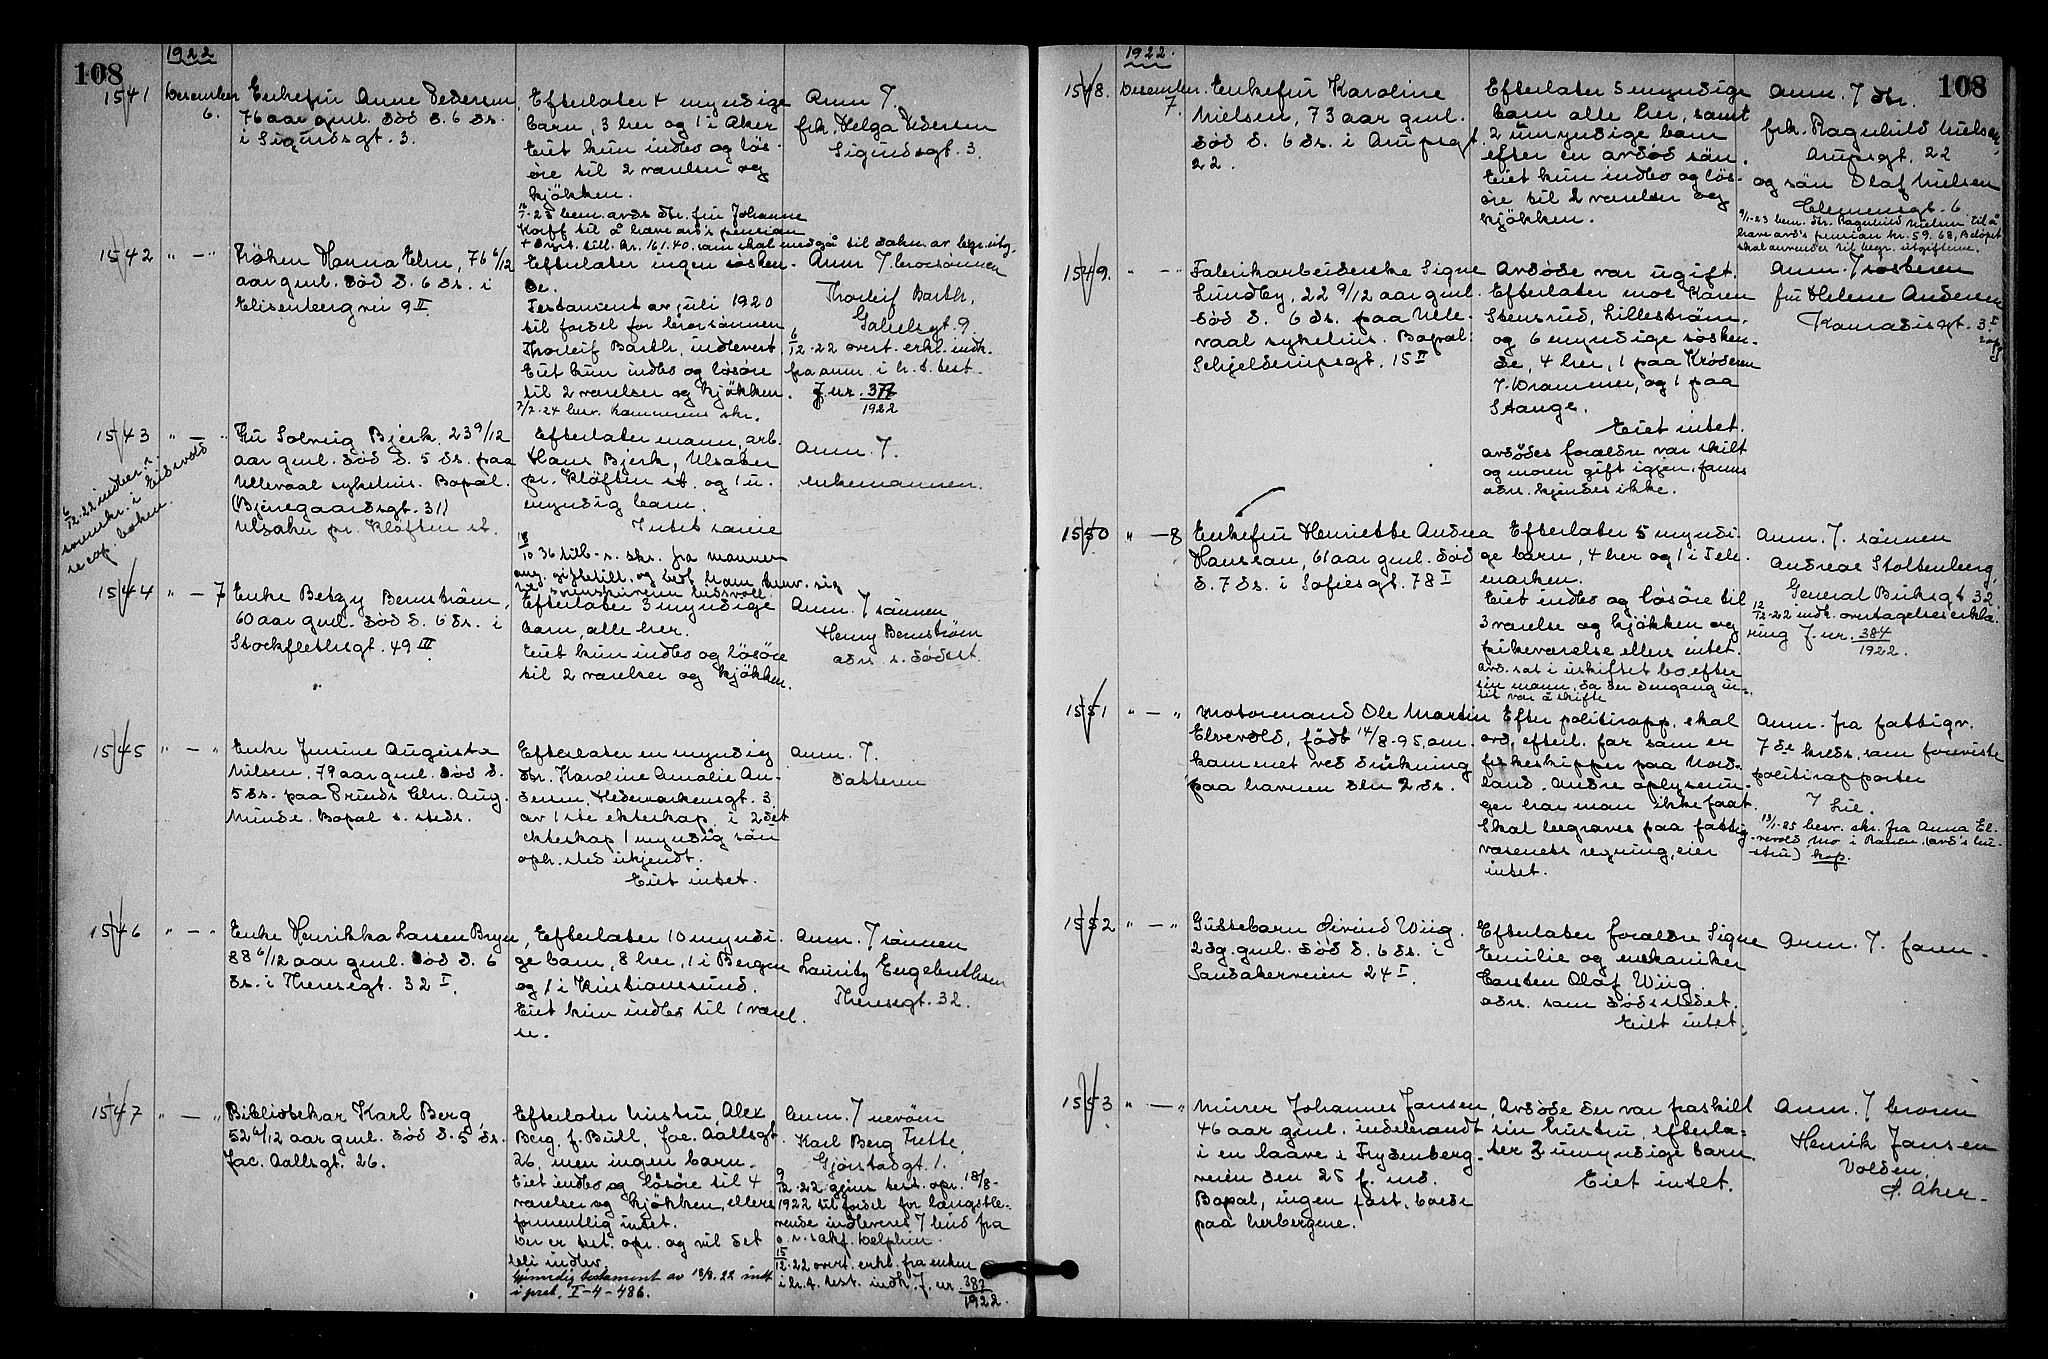 108
1922
1541 Desember 6.
Enkefru Anne Pedersen,
76 aar gml. død d. 6 ds.
i Sigurdsgt. 3.
Efterlater 4 myndige
barn, 3 her og 1 i Aker
Eiet kun indbo og løs-
øre til 2 værelser og
kjøkken.
12/1-23 bem. avds dtr. fru Johanne
Korff til å hæve avd's pension
+ dyrt. till. kr. 161.40. som skal medgå til dækn. av begr. utg.
Anm. 7.
frk. Helga Pedersen
Sigurdsgt. 3.
1542 " — "
Frøken Hanna Elm, 76 6/12
aar gml. død d. 6 ds. i
Elisenbergvei 9 II.
Efterlater ingen søsken-
de.
Testament av juli 1920
til fordel for brorsønnen
Thorleif Barth, indlevert.
Eiet kun indbo og løsøre
til 2 værelser og kjøkken.
7/2-24 besv. Kammerets skr.
Anm. 7. brorsønnen
Thorleif Barth,
Gabelsgt. 9.
6/12-22 overt. erkl. indk.
fra anm. i h. t. test.
J. nr. 377/1922
1543 " — "
Fru Solveig Bjerk, 23 9/12
aar gml. død d. 5 ds. paa
Ullevaal sykehus. Bopæl.
(Bjerregaardsgt. 31)
Ulsaker pr. Kløften st.
6/12-22 indber. t.
sorenskr. i Eidsvold
recep. boken.
Efterlater mann, arb.
Hans Bjerk, Ulsaker
pr. Kløften st. og 1 u-
myndig barn.
Intet særeie
18/10 36 tilb. r. skr. fra mannen
ang. giftetill. og bedt ham henv. sig
til sorenskriveren Eidsvoll.
Anm. 7.
enkemannen.
1544 " — 7
Enke Betzy Bernstrøm,
60 aar gml. død d. 6 ds. i
Stockflethsgt. 49 III.
Efterlater 3 myndige
barn, alle her.
Eiet kun indbo og løsøre
til 2 værelser og kjøkken.
Anm. 7 sønnen
Henry Bernstrøm
adr. s. dødsst.
1545 " — "
Enke Jensine Augusta
Nilsen, 79 aar gml. død d.
5 ds. paa Prinds Chr. Aug.
Minde. Bopæl s. steds.
Efterlater en myndig
dtr. Karoline Amalie An-
dersen, Hedemarkensgt. 3
av 1ste ekteskap, i 2det
ekteskap 1 myndig søn
oph. sted ukjendt.
Eiet intet.
Anm. 7.
datteren
1546 " — "
Enke Henrikka Larsen Bryn,
88 6/12 aar gml. død d. 6
ds. i Theresegt. 32 I.
Efterlater 10 myndi-
ge barn, 8 her, 1 i Bergen
og 1 i Kristiansund.
Eiet kun indbo til 1 værel-
se.
Anm. 7 sønnen
Lauritz Engebrethsen
Theresegt. 32.
1547 " — "
Bibliotekar Karl Berg,
52 6/12 aar gml. død d. 5 ds.
Jac. Aallsgt. 26.
Efterlater hustru Alex
Berg, f. Bull, Jac. Aallsgt.
26, men ingen barn.
Eiet indbo og løsøre til 4
værelser og kjøkken, ellers
formentlig intet.
Der er test. opr. og vil det
bli indlev.
Gjensidig testament av 18/8.22 indt.
i prot. I-4-486.
Anm. 7 nevøen
Karl Berg Frette,
Gjørstadgt. 1.
9/12-22 gjens. test. opr. 18/8-
1922 til fordel for længstle-
vende indleveres 7 bud fra
o. r. sakf. Delphin.
15/12-22 overt. erkl. fra enken
i h. t. test. indk. J. nr. 387/1922.
108
1922.
1548. Desember 7.
Enkefru Karoline
Nielsen, 73 aar gml.
død d. 6 ds. i Arupsgt
22.
Efterlater 5 myndige
barn alle her, samt
2 umyndige barn
efter en avdød søn.
Eiet kun indbo og løs-
øre til 2 værelser og
kjøkken.
Anm. 7 dtr.
frk. Ragnhild Nielsen,
Arupsgt. 22
og søn Olaf Nielsen
Clemensgt. 6.
9/1-23 bem. dtr. Ragnhild Nielsen til å
hæve avd's pension kr. 59.68, Beløpet
skal anvendes til begr. utgiftene.
1549. " — "
Fabrikarbeiderske Signe
Lundby, 22 9/12 aar gml.
død d. 6 ds. paa Ulle-
vaal sykehus. Bopæl:
Schjelderupsgt. 15 II
Avdøde var ugift.
Efterlater mor Karen
Stensrud, Lillestrøm,
og 6 myndige søsken-
de, 4 her, 1 paa Krøderen
7. Drammen, og 1 paa
Stange.
Eiet intet.
avdødes forældre var skilt
og moren gift igjen, farens
adr. kjendes ikke.
Anm. 7 søsteren
fru Helene Andersen
Konradisgt. 3 I
1550 " — 8
Enkefru Henriette Andrea
Hanssen, 61 aar gml. død
d. 7 ds. i Sofiesgt. 78 I
Efterlater 5 myndi-
ge barn, 4 her og 1 i Tele-
marken.
Eiet indbo og løsøre til
3 værelse og kjøkken og
pikeværelse ellers intet.
avd. sat i uskiftet bo efter
sin mann, da der dengang in-
tet var å skifte
Anm. 7. sønnen
Andreas Stoltenberg,
General Birksgt 32.
12/12-22 indk. overtagelseserklæ-
ring J. nr. 384/1922.
1551 " — "
Motormand Ole Martin
Elvevold, født 14/8-95, om-
kommet ved drukning
paa havnen den 2 ds.
Efter politirapp. skal
avd. efterl. far som er
fiskeskipper paa Nord-
land. Andre oplysnin-
ger har man ikke faat.
Skal begraves paa fattig-
væsenets regning, eier
intet.
Anm. fra fattigv.
7de kreds, som foreviste
politirapporten
7 Lie.
13/1-25 besv. skr. fra Anna El-
vevold Mo i Ranen, (avd's hu-
stru) kop.
1552 " — "
Guttebarn Øivind Wiig.
2 dg. gml. død d. 6 ds. i
Sandakerveien 24 I.
Efterlater forældre Signe
Emilie og mekaniker
Carsten Olaf Wiig.
adr. som dødsstedet.
Eiet intet.
Anm. 7. faren.
1553 " — "
Murer Johannes Jansen,
46 aar gml. indebrændt
i en laave i Frydenberg-
veien den 25 f. md.
Bopæl, ingen fast, bodde
paa herbergene.
Avdøde der var fraskilt
sin hustru, efterla-
ter 3 umyndige barn
Eiet intet.
Anm. 7 broren
Henrik Jansen
Volden,
Ø. Aker.